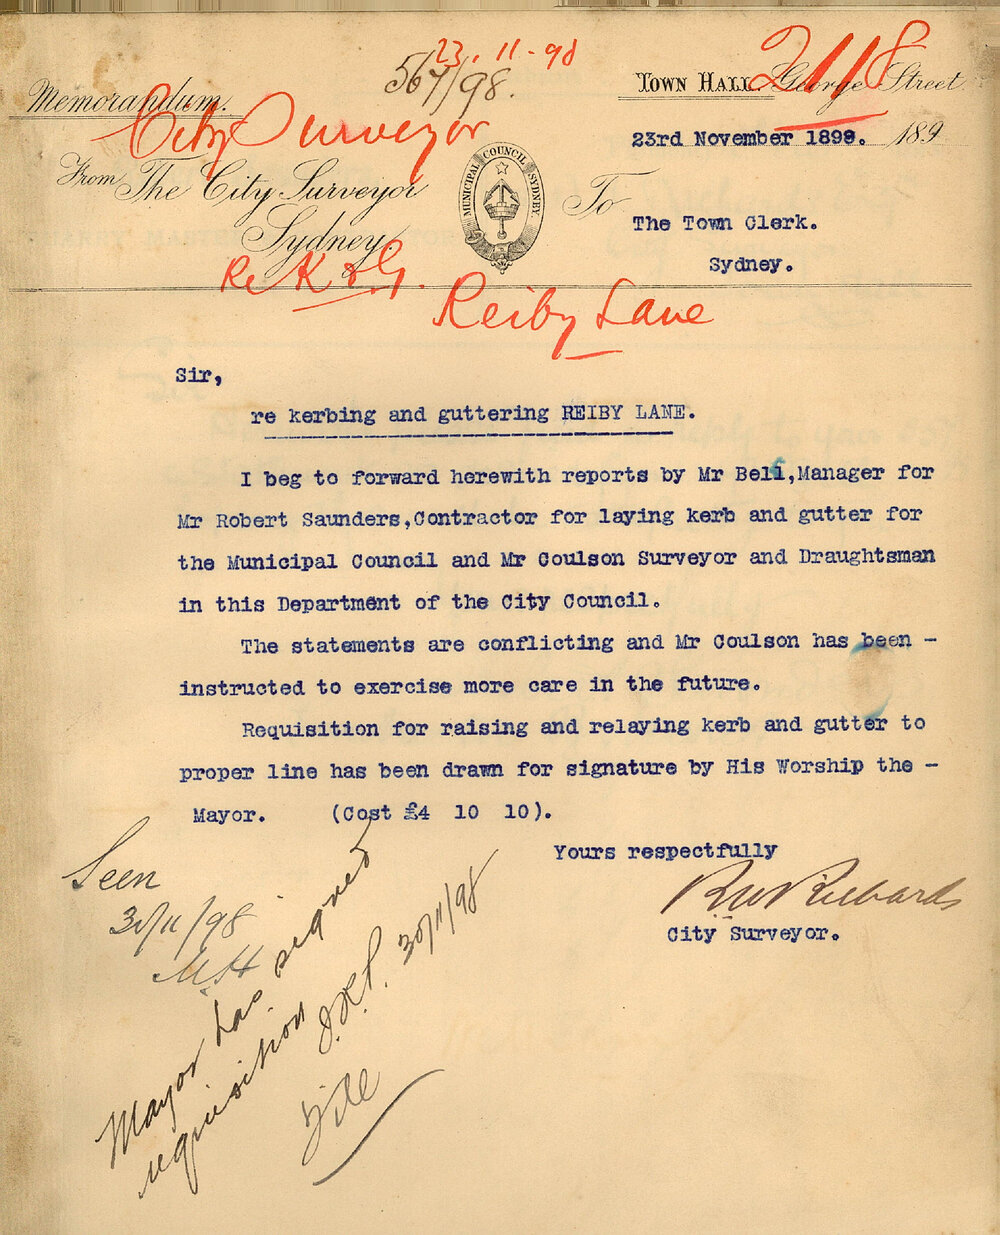 23.11-98
567/98.
2118
Memorandum.
Town Hall. George Street
City Surveyor
23rd November 1898. 189
From The City Surveyor
Sydney.
MUNICIPAL COUNCIL SYDNEY.
To
The Town Clerk.
Sydney.
Re K & G.
Reiby Lane
Sir,
re kerbing and guttering REIBY LANE.
I beg to forward herewith reports by Mr Bell,Manager for
Mr Robert Saunders,Contractor for laying kerb and gutter for
the Municipal Council and Mr Coulson Surveyor and Draughtsman
in this Department of the City Council.
The statements are conflicting and Mr Coulson has been -
instructed to exercise more care in the future.
Requisition for raising and relaying kerb and gutter to
proper line has been drawn for signature by His Worship the -
Mayor. (Cost £4 10 10).
Yours respectfully
R W Richards
City Surveyor.
Seen
30/11/98
M.H
Mayor has signed
requisition
30/11/98
File